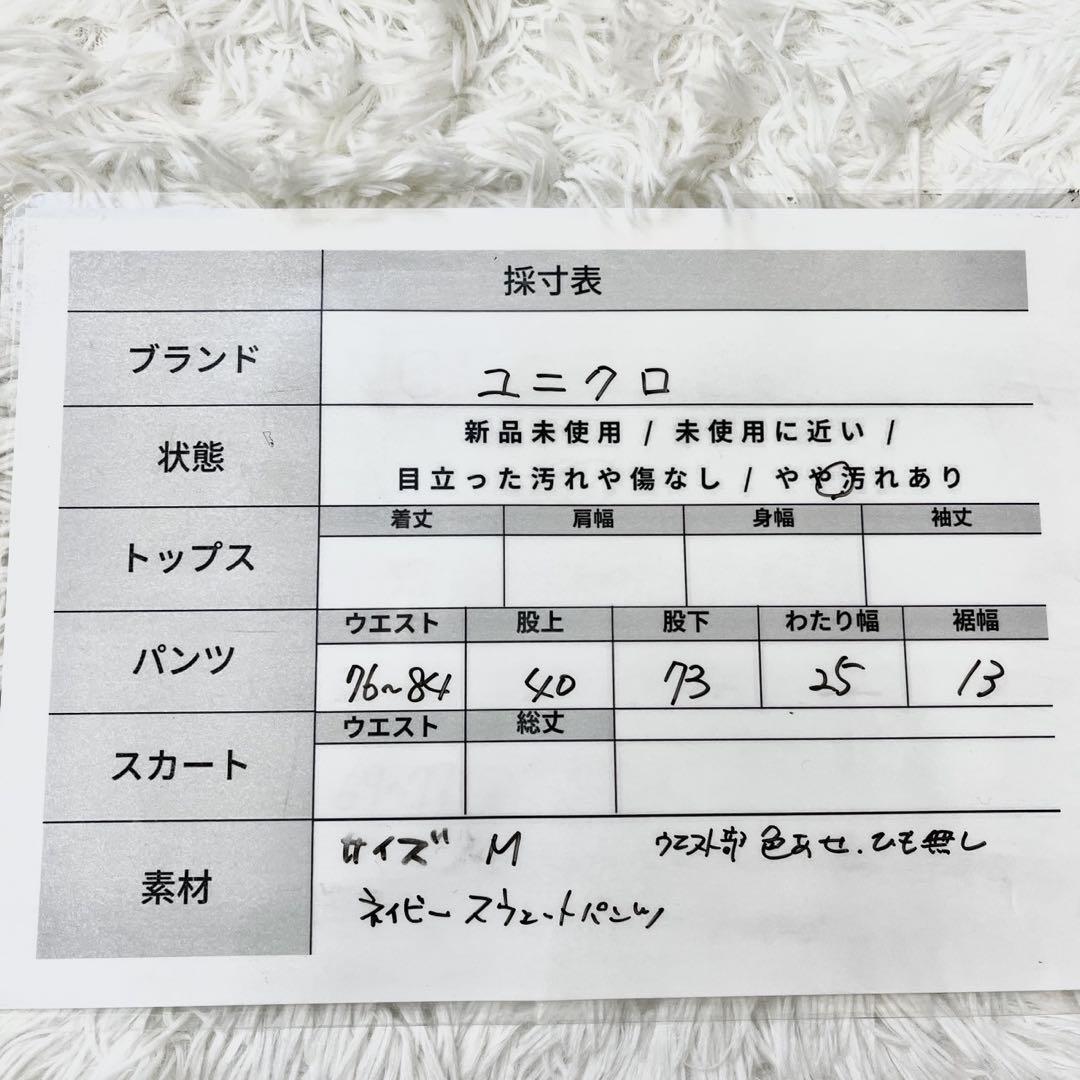 採寸表
ブランド
ユニクロ
状態
新品未使用 / 未使用に近い /
目立った汚れや傷なし / やや汚れあり
トップス
着丈 肩幅 身幅 袖丈
パンツ
ウエスト 股上 股下 わたり幅 裾幅
76~84 40 73 25 13
スカート
ウエスト 総丈
素材
サイズ M ウエスト部 色あせ、ひも無し
ネイビー スウェットパンツ